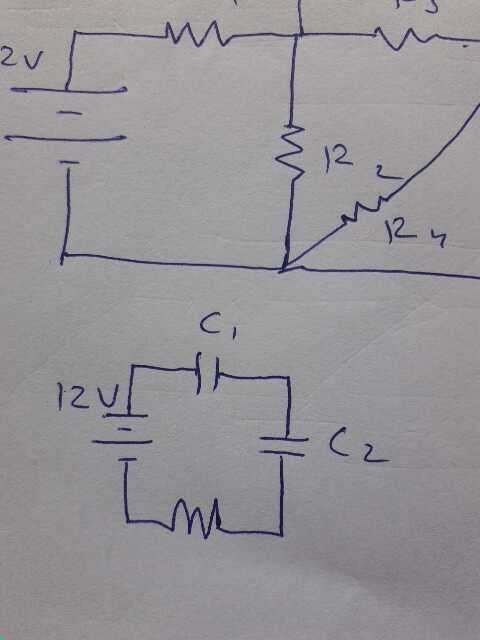 2V
R2
R4
C1
12V
C2